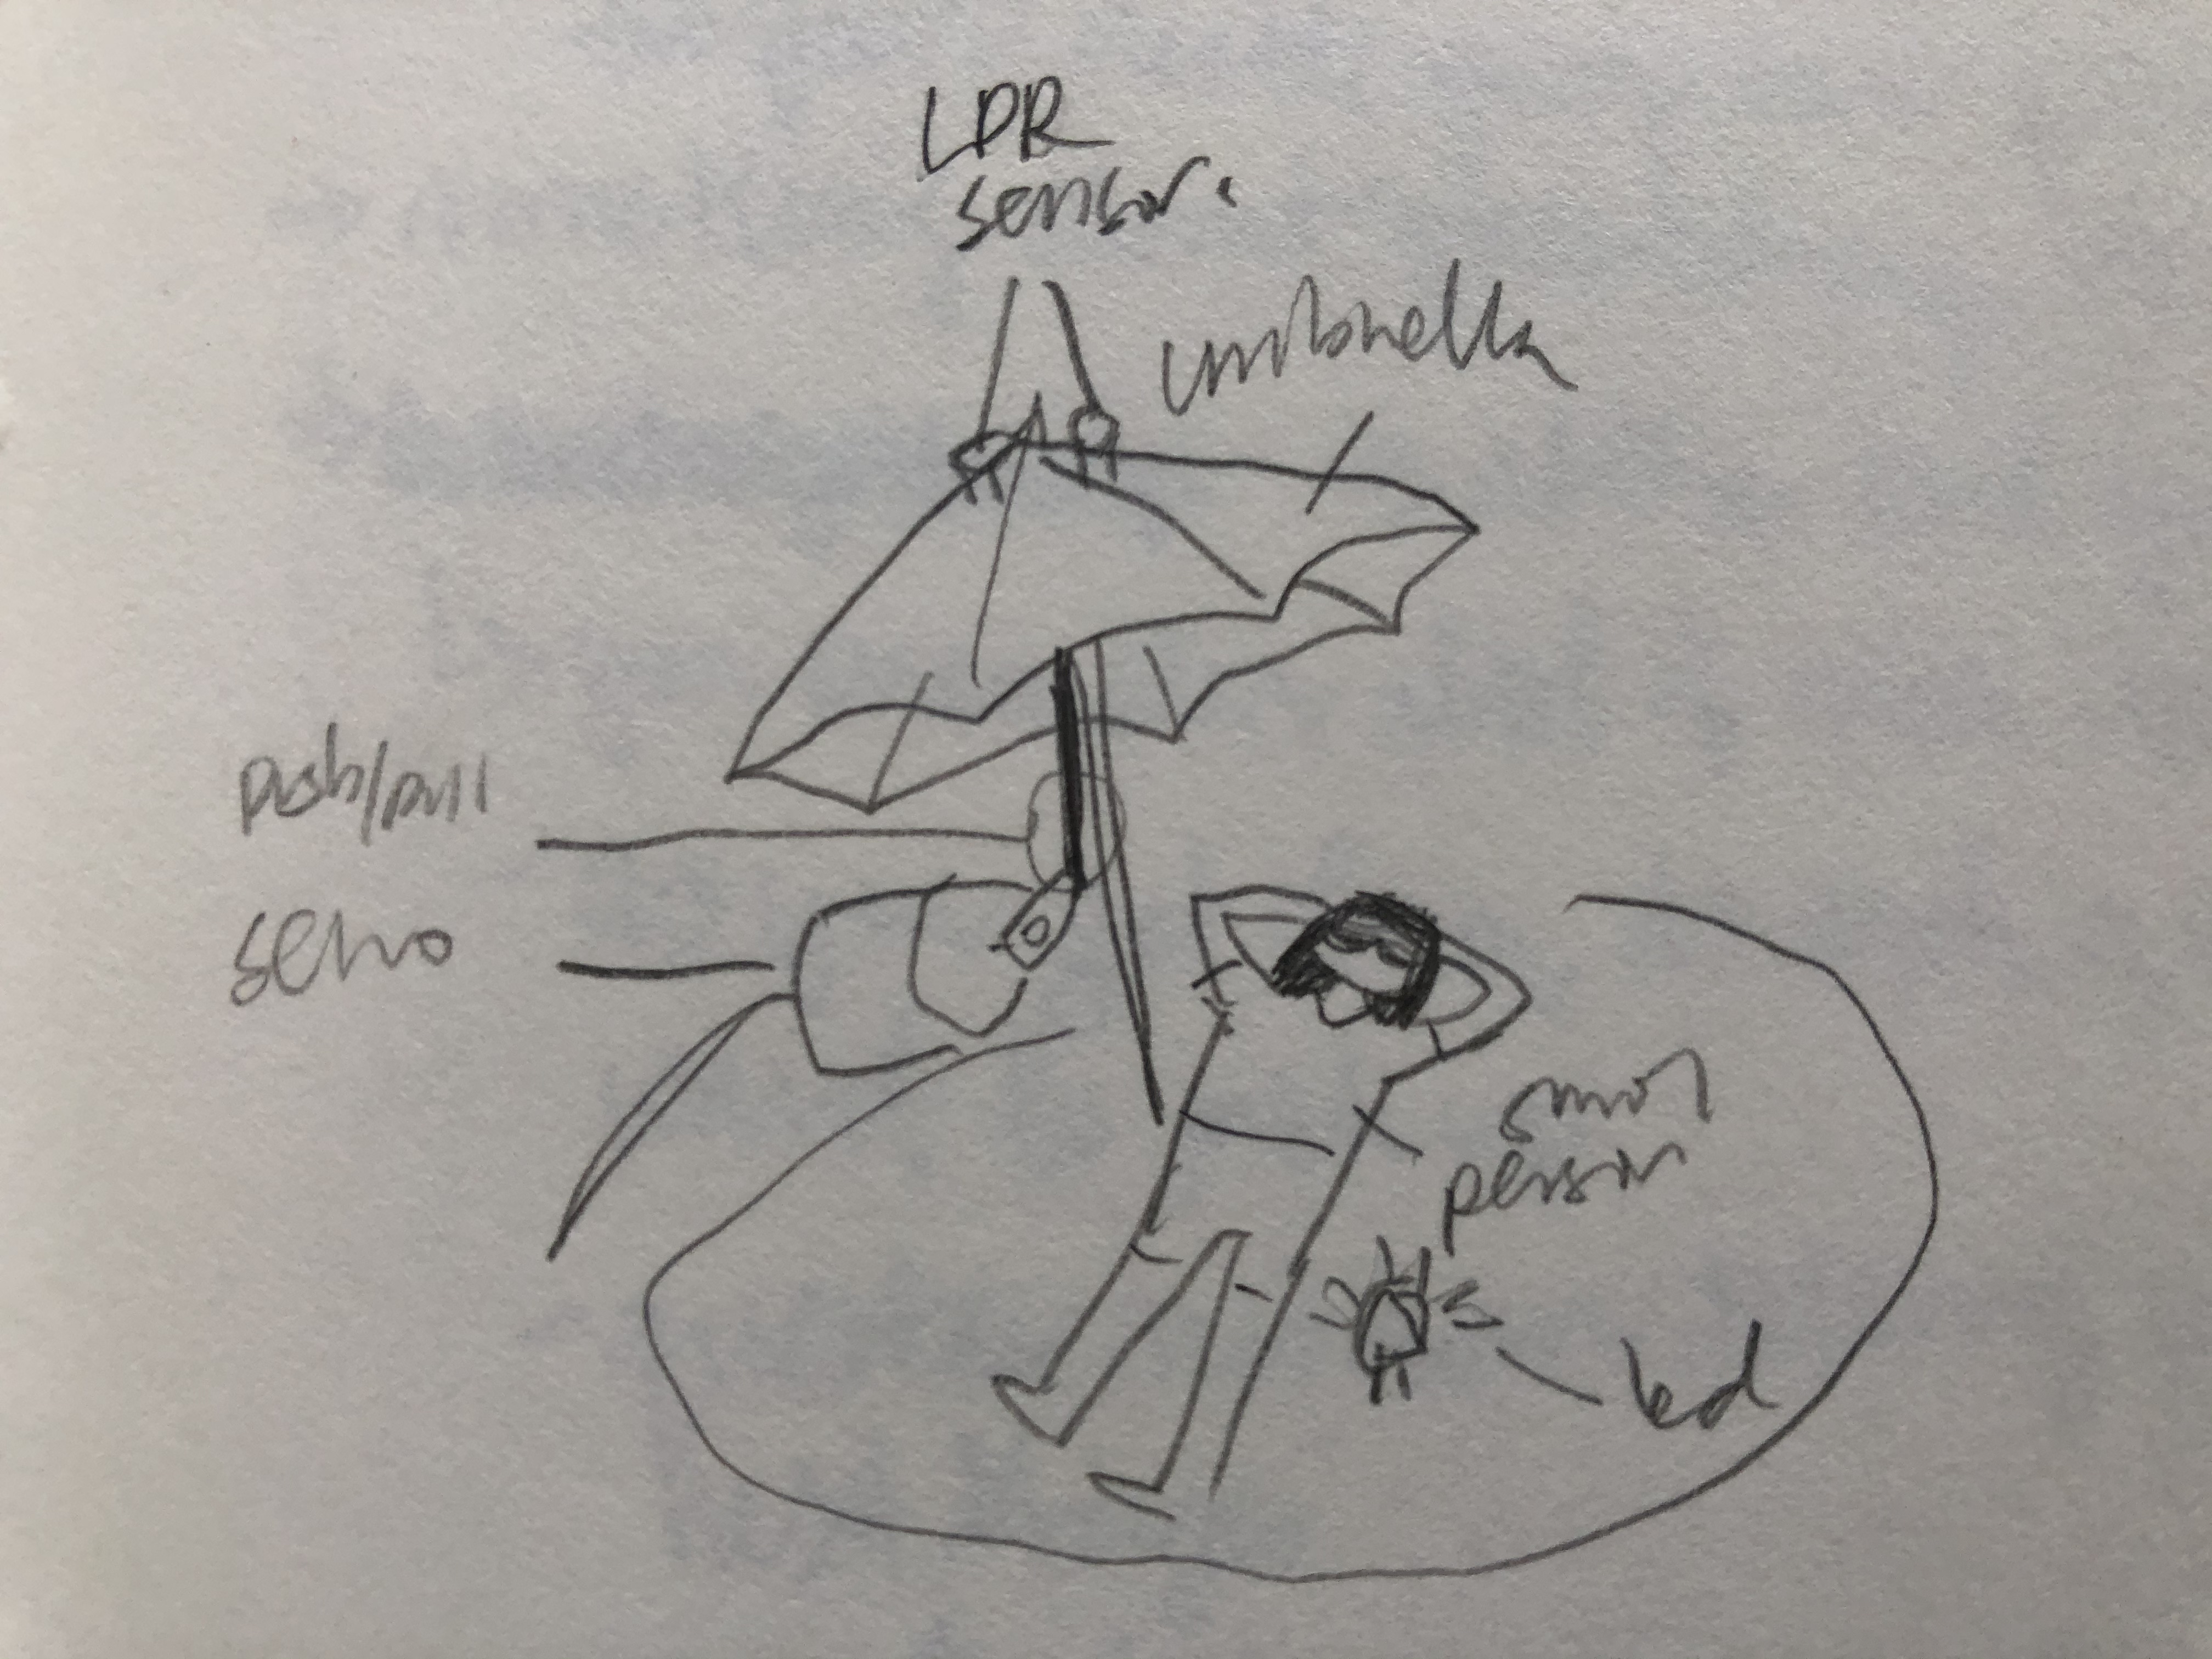 LDR
sensor.
umbrella
push/pull
servo
smol
person
led